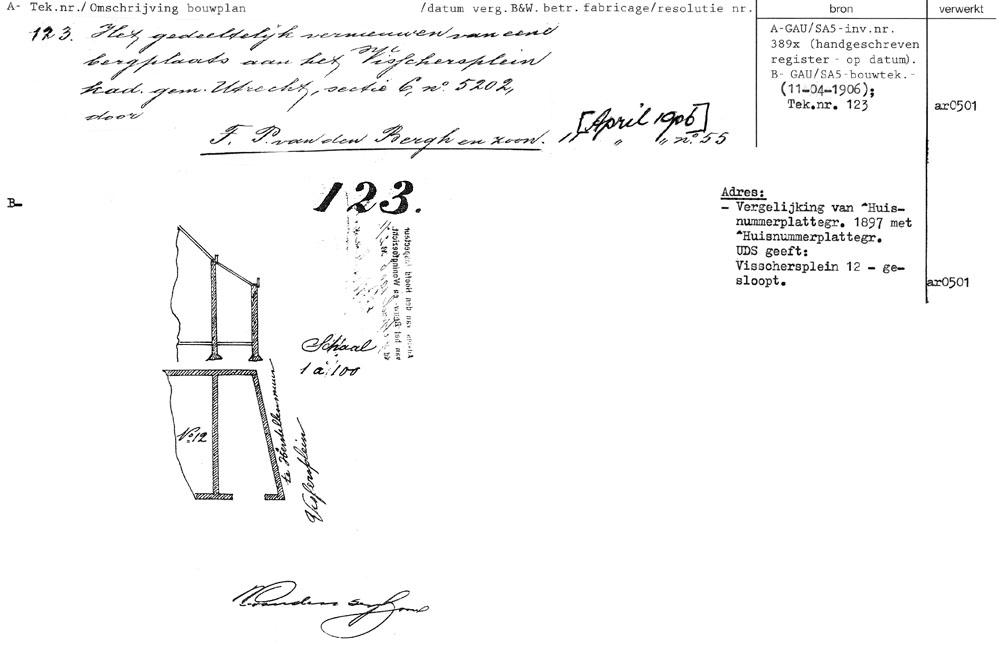 A- Tek.nr./Omschrijving bouwplan /datum verg.B&W. betr. fabricage/resolutie nr. bron verwerkt
123. Het gedeeltelijk vernieuwen van eene
bergplaats aan het Visschersplein
kad. gem. Utrecht, sectie C, no. 5202,
door
F. P. van den Bergh en zoon. „ [April 1906] „ „ no. 55
A-GAU/SA5-inv.nr.
389x (handgeschreven
register - op datum).
B- GAU/SA5-bouwtek.-
(11-04-1906);
Tek.nr. 123
ar0501
B-
123.
Adres:
- Vergelijking van "Huis-
nummerplattegr. 1897 met
"Huisnummerplattegr.
UDS geeft:
Visschersplein 12 - ge-
sloopt.
ar0501
Schaal
1 à 100
No. 12
te Herstellen muur
Vissersplein